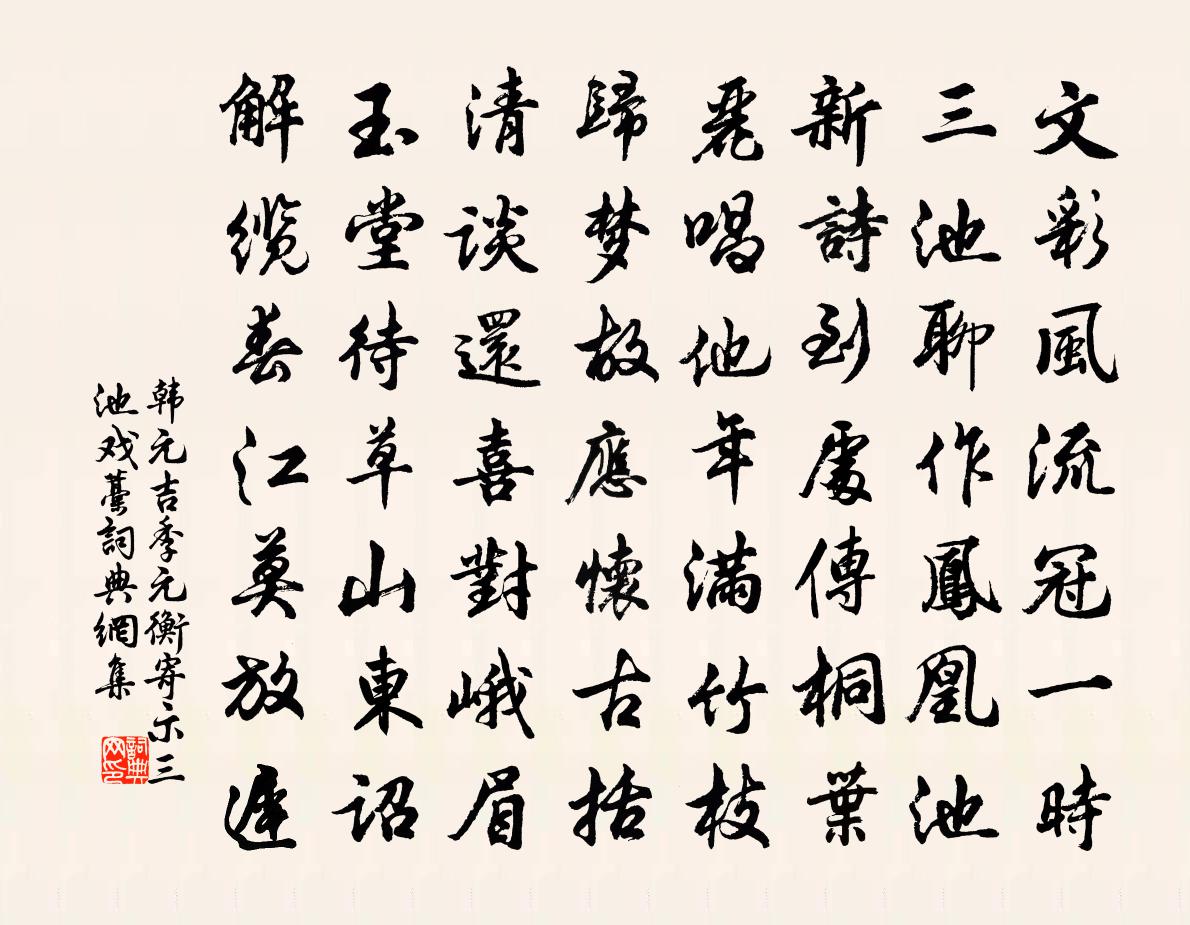 文彩風流冠一時
三池聊作鳳凰池
新詩到處傳桐葉
麗唱他年滿竹枝
歸梦故應懷古括
清談還喜對峨眉
玉堂待草山東詔
解缆春江莫放遲
韩元吉季元衡寄示三
池戏藁詞典網集
詞典
网印